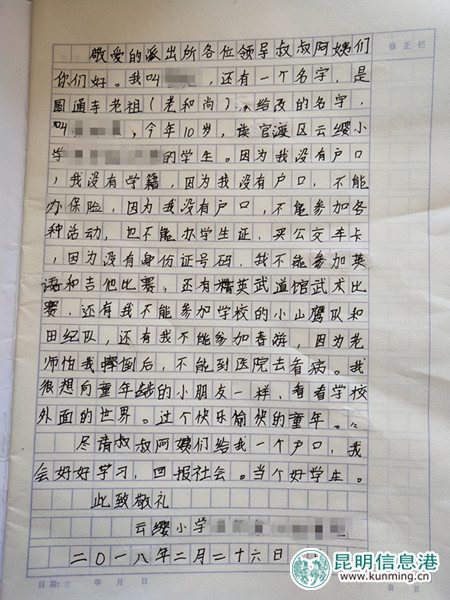 修正栏
敬爱的派出所各位领导叔叔阿姨们
你们好。我叫，还有一个名字，是
圆通寺老祖（老和尚）给改的名字，
叫，今年10岁，读官渡区云缨小
学的学生。因为我没有户口
，我没有学籍，因为我没有户口，不能
办保险，因为我没有户口，不能参加各
种活动，也不能办学生证，买公交车卡
，因为没有身份证号码，我不能参加英
语和吉他比赛，还有精英武道馆武术比
赛，还有我不能参加学校的小山鹰队和
田纪队，还有我不能参加春游，因为老
师怕我摔倒后，不能到医院去看病。我
很想向童年的小朋友一样，看看学校
外面的世界。过个快乐愉快的童年。
尽请叔叔阿姨们给我一个户口，我
会好好学习，回报社会。当个好学生。
此致敬礼
云缨小学
二〇一八年二月二十六日
日期: 年 月 日
昆明信息港
www.kunming.cn